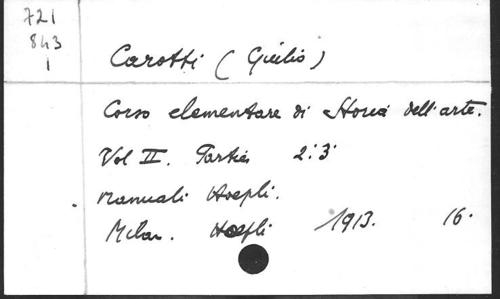 721
843
1
Carotti (Giulio)
Corso elementare di Storia dell'arte.
Vol II. Parties 2: 3:
Manuali Hoepli.
Milan. Hoepli 1913. 16.